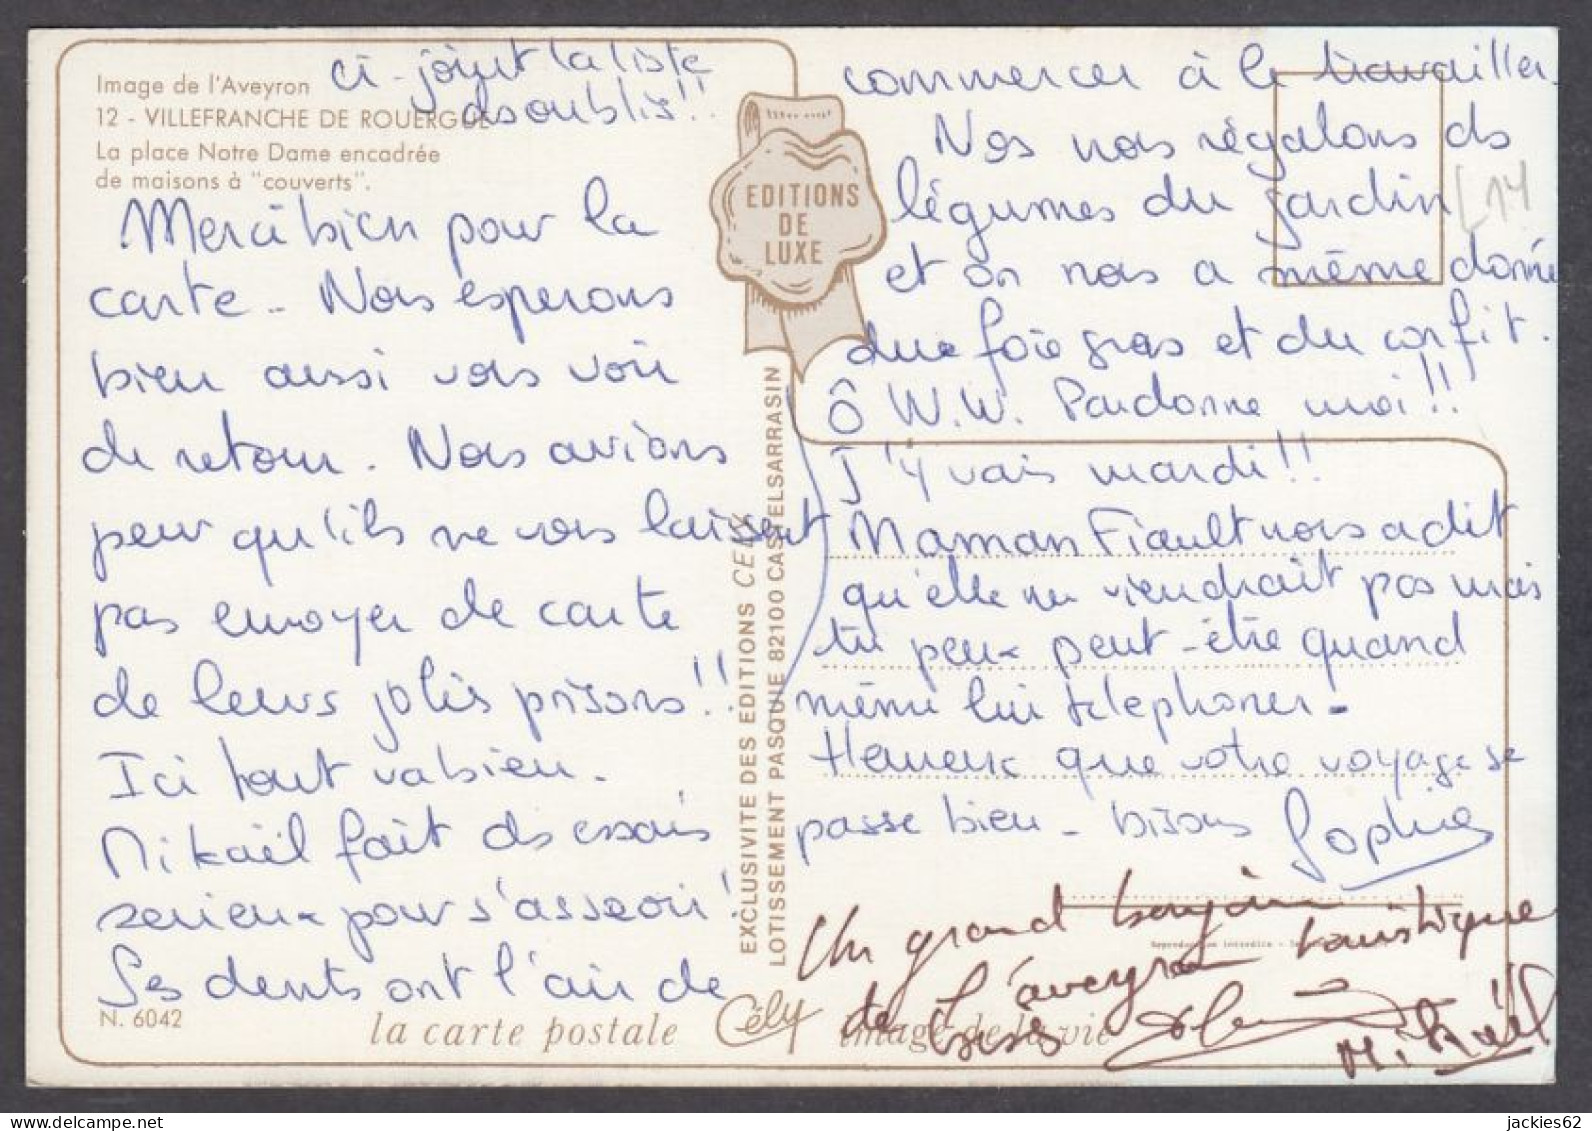 ci-joint la liste
des oublis!!
Image de l'Aveyron
12 - VILLEFRANCHE DE ROUERGUE
La place Notre Dame encadrée
de maisons à "couverts".
Merci bien pour la
carte - Nous esperons
bien aussi vous voir
de retour. Nous avions
peur qu'ils ne vous laissent
pas envoyer de carte
de leurs jolis prisons!!
Ici tout va bien.
Mikaël fait ds essais
serieux pour s'asseoir!
Ses dents ont l'air de
N. 6042
EDITIONS
DE
LUXE
EXCLUSIVITE DES EDITIONS CELY
LOTISSEMENT PASQUIE 82100 CASTELSARRASIN
commencer à le travailler.
Nos nous régalons ds
légumes du jardin
[14
et on nous a même donné
du foie gras et du confit.
Ô W.W. Pardonne moi!!
J'y vais mardi!!
Maman Fiault nous a dit
qu'elle ne viendrait pas mais
tu peux peut-être quand
même lui telephoner -
Heureux que votre voyage se
passe bien - bisous Sophie
Reproduction interdite
Un grand bonjour touristique
de l'aveyron
bises
Mikaël
la carte postale Cély image de la vie
jackies62